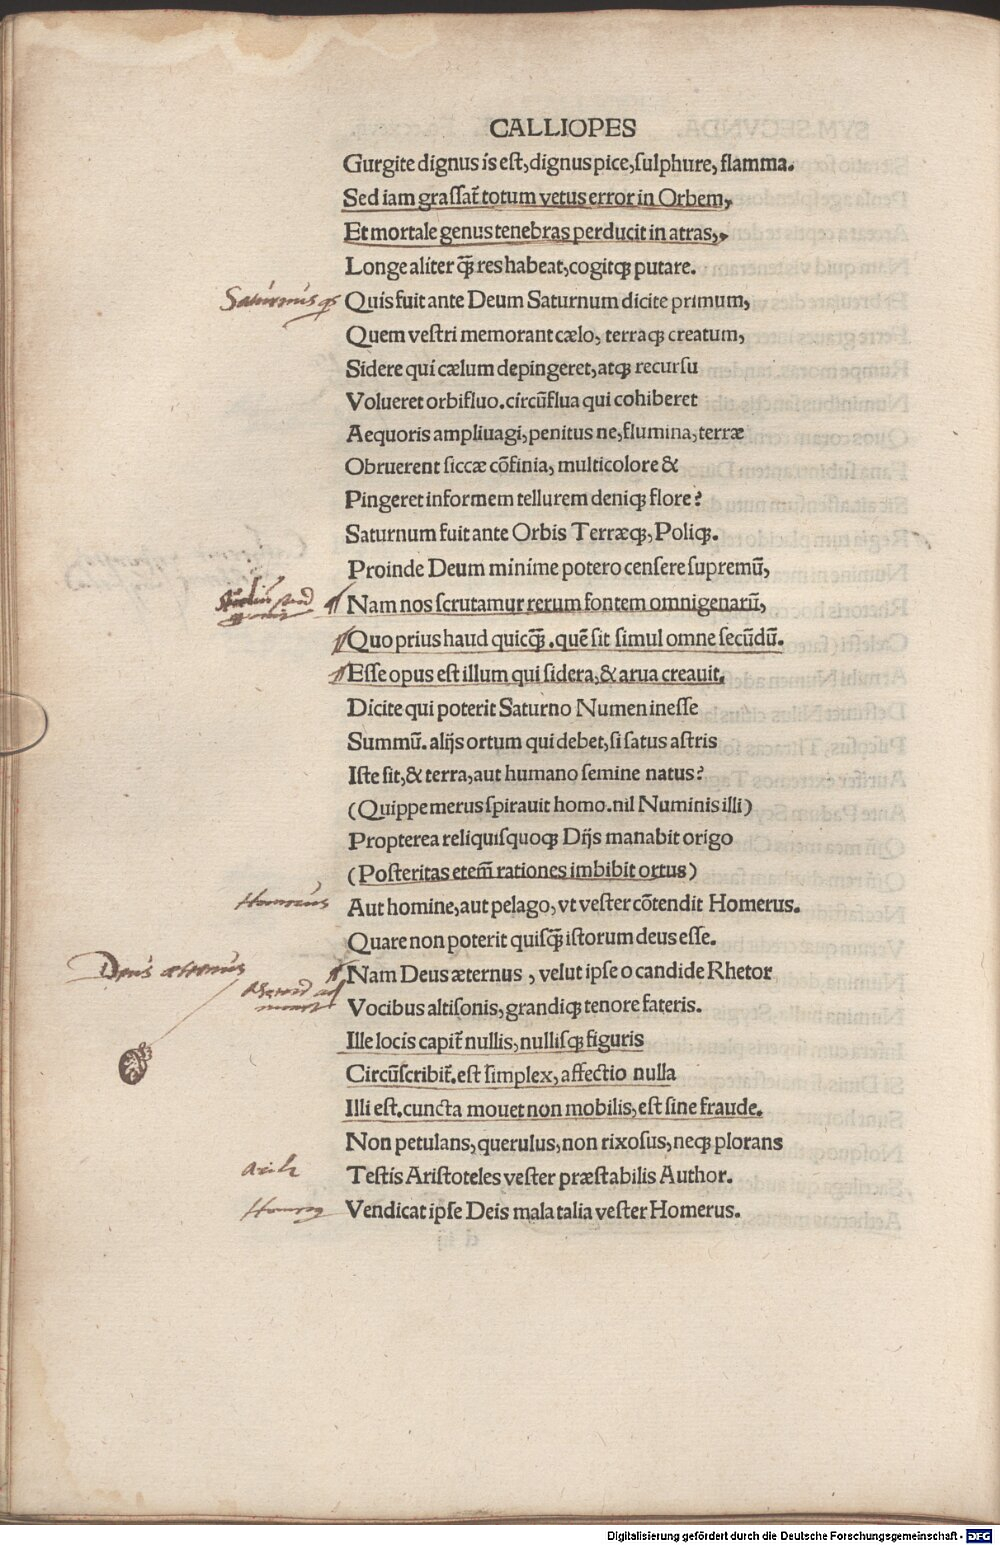 CALLIOPES
Gurgite dignus is est, dignus pice, sulphure, flamma.
Sed iam grassat̃ totum vetus error in Orbem,
Et mortale genus tenebras perducit in atras,
Longe aliter q̃ꝫ res habeat, cogitqꝫ putare.
Saturnus
Quis fuit ante Deum Saturnum dicite primum,
Quem vestri memorant cælo, terraqꝫ creatum,
Sidere qui cælum depingeret, atqꝫ recursu
Volueret orbifluo. circũflua qui cohiberet
Aequoris ampliuagi, penitus ne, flumina, terræ
Obruerent siccæ cõfinia, multicolore &
Pingeret informem tellurem deniqꝫ flore?
Saturnum fuit ante Orbis Terræqꝫ, Poliqꝫ.
Proinde Deum minime potero censere supremũ,
Nam nos scrutamur rerum fontem omnigenarũ,
Quo prius haud quicq̃ꝫ. quẽ sit simul omne secũdũ.
Esse opus est illum qui sidera, & arua creauit.
Dicite qui poterit Saturno Numen inesse
Summũ. alijs ortum qui debet, si satus astris
Iste sit, & terra, aut humano semine natus?
(Quippe merus spirauit homo. nil Numinis illi)
Propterea reliquisquoqꝫ Dijs manabit origo
(Posteritas etem̃ rationes imbibit ortus)
Homerus
Aut homine, aut pelago, vt vester cõtendit Homerus.
Quare non poterit quisq̃ꝫ istorum deus esse.
Deus æternus
Nam Deus æternus, velut ipse o candide Rhetor
Vocibus altisonis, grandiqꝫ tenore fateris.
Ille locis capit̃ nullis, nullisqꝫ figuris
Circũscribit̃. est simplex, affectio nulla
Illi est. cuncta mouet non mobilis, est sine fraude.
Non petulans, querulus, non rixosus, neqꝫ plorans
Testis Aristoteles vester præstabilis Author.
Vendicat ipse Deis mala talia vester Homerus.
Digitalisierung gefördert durch die Deutsche Forschungsgemeinschaft - DFG